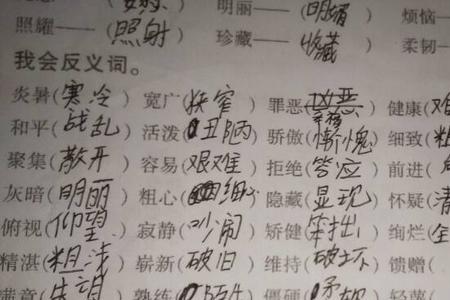 明丽——(明晴 烦恼—
照耀——(照射) 珍藏——(收藏) 柔韧—
我会反义词。
炎暑(寒冷) 宽广(狭窄) 罪恶( 健康(
和平(战乱) 活泼(丑陋) 骄傲(惭愧) 细致(粗
聚集(散开) 容易(艰难) 拒绝(答应) 前进(
灰暗(明丽) 粗心(细心) 隐藏(显现) 怀疑(清
俯视(仰望) 寂静(吵闹) 矫健(笨拙) 绚烂(
精湛(粗浅) 崭新(破旧) 维持(破坏) 馈赠(
满意(失望 熟练( 僵硬(柔软 轻蔑(